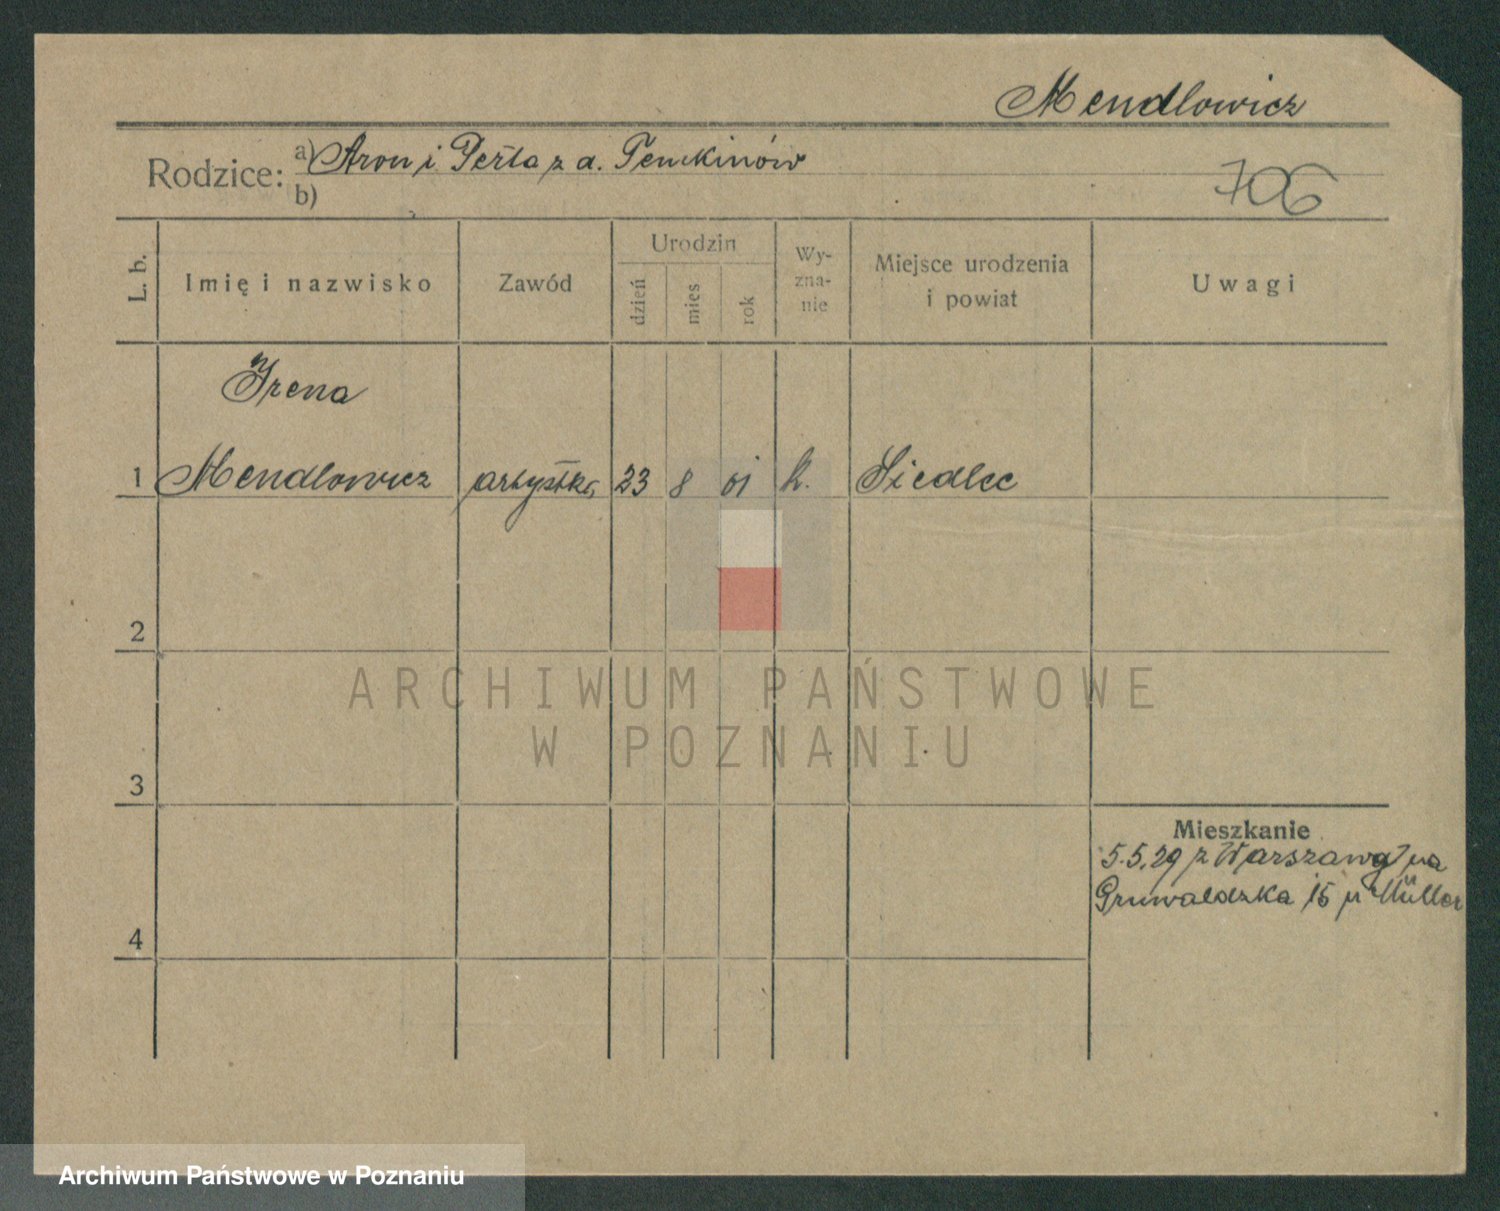 Mendlowicz
Rodzice: a) Aron i Perla z d. Temkinów
b)
706
L. b. Imię i nazwisko Zawód Urodzin dzień mies rok Wy-zna-nie Miejsce urodzenia i powiat Uwagi
Irena
1 Mendlowicz artystka 23 8 01 k. Siedlec
2
ARCHIWUM PAŃSTWOWE
W POZNANIU
3
Mieszkanie
5.5.29 z Warszawy na
Grunwaldzka 15 u Müller
4
Archiwum Państwowe w Poznaniu